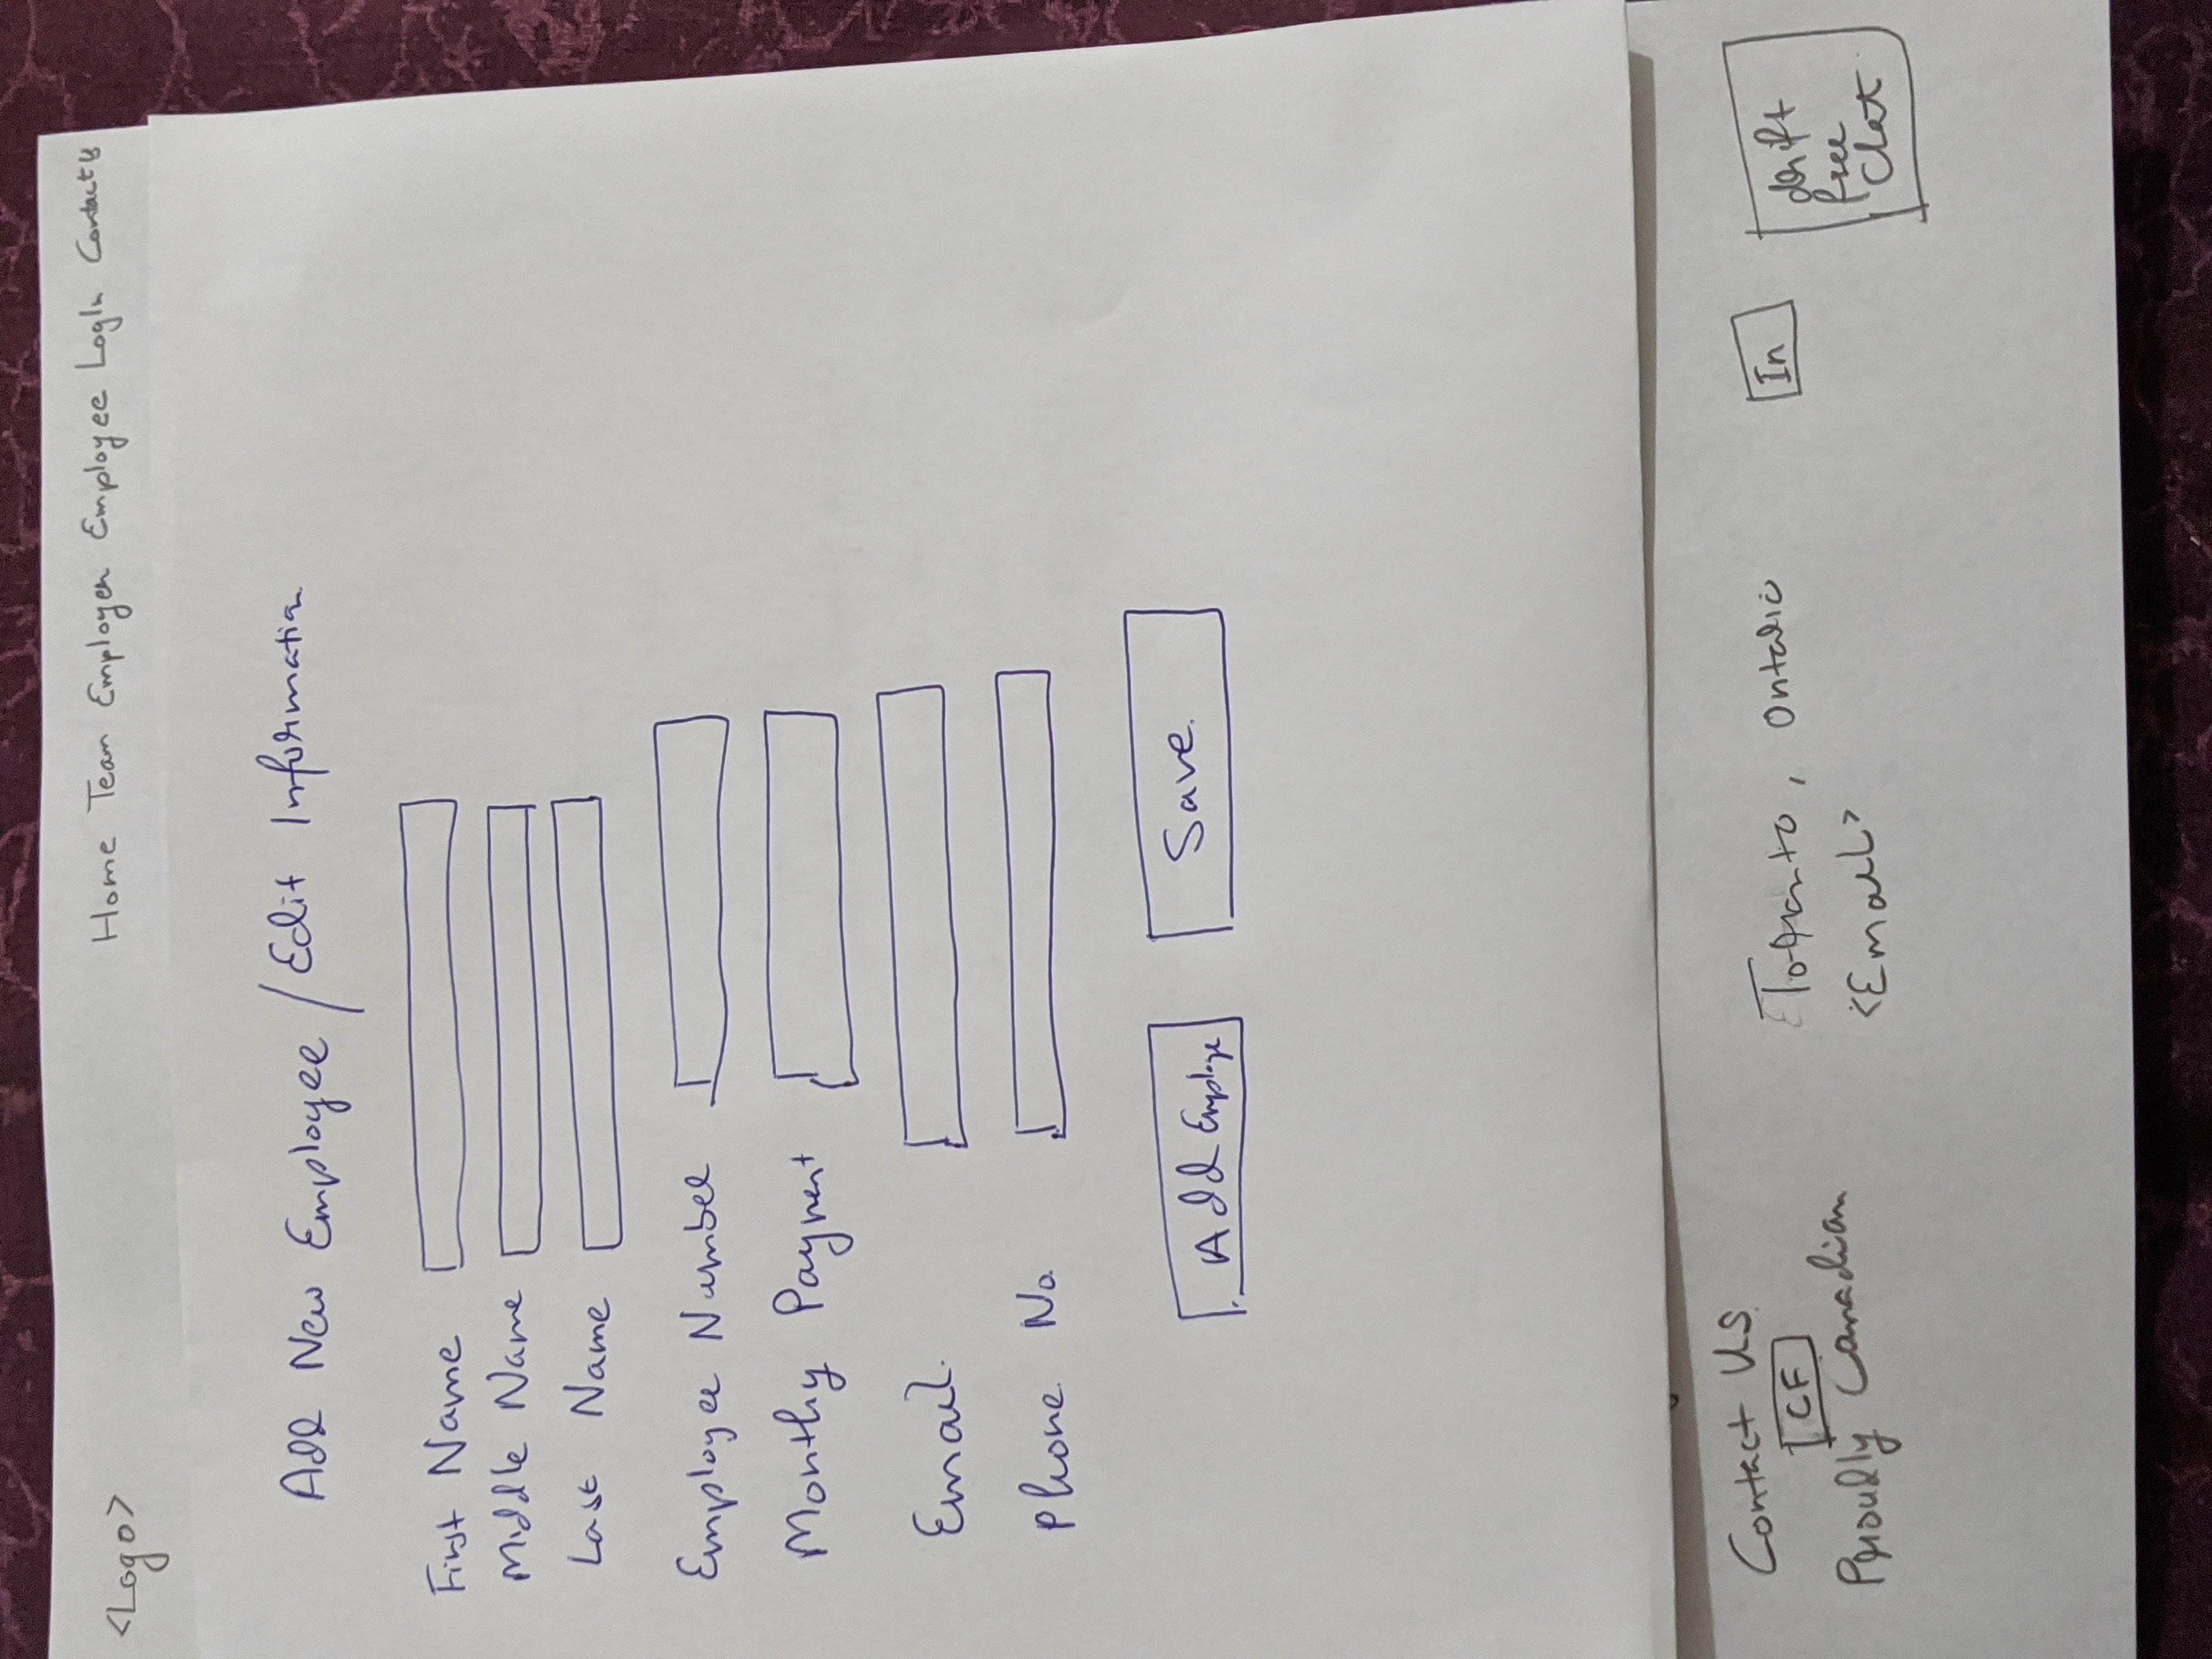 <Logo>
Home Team Employer Employee LogIn Contact Us
Add New Employee / Edit Information
First Name
Middle Name
Last Name
Employee Number
Monthy Payment
Email.
Phone No.
Add Employe
Save.
Contact Us
CF
Proudly Canadian
Toronto, Ontario
<Email>
In
drift
free
Chat